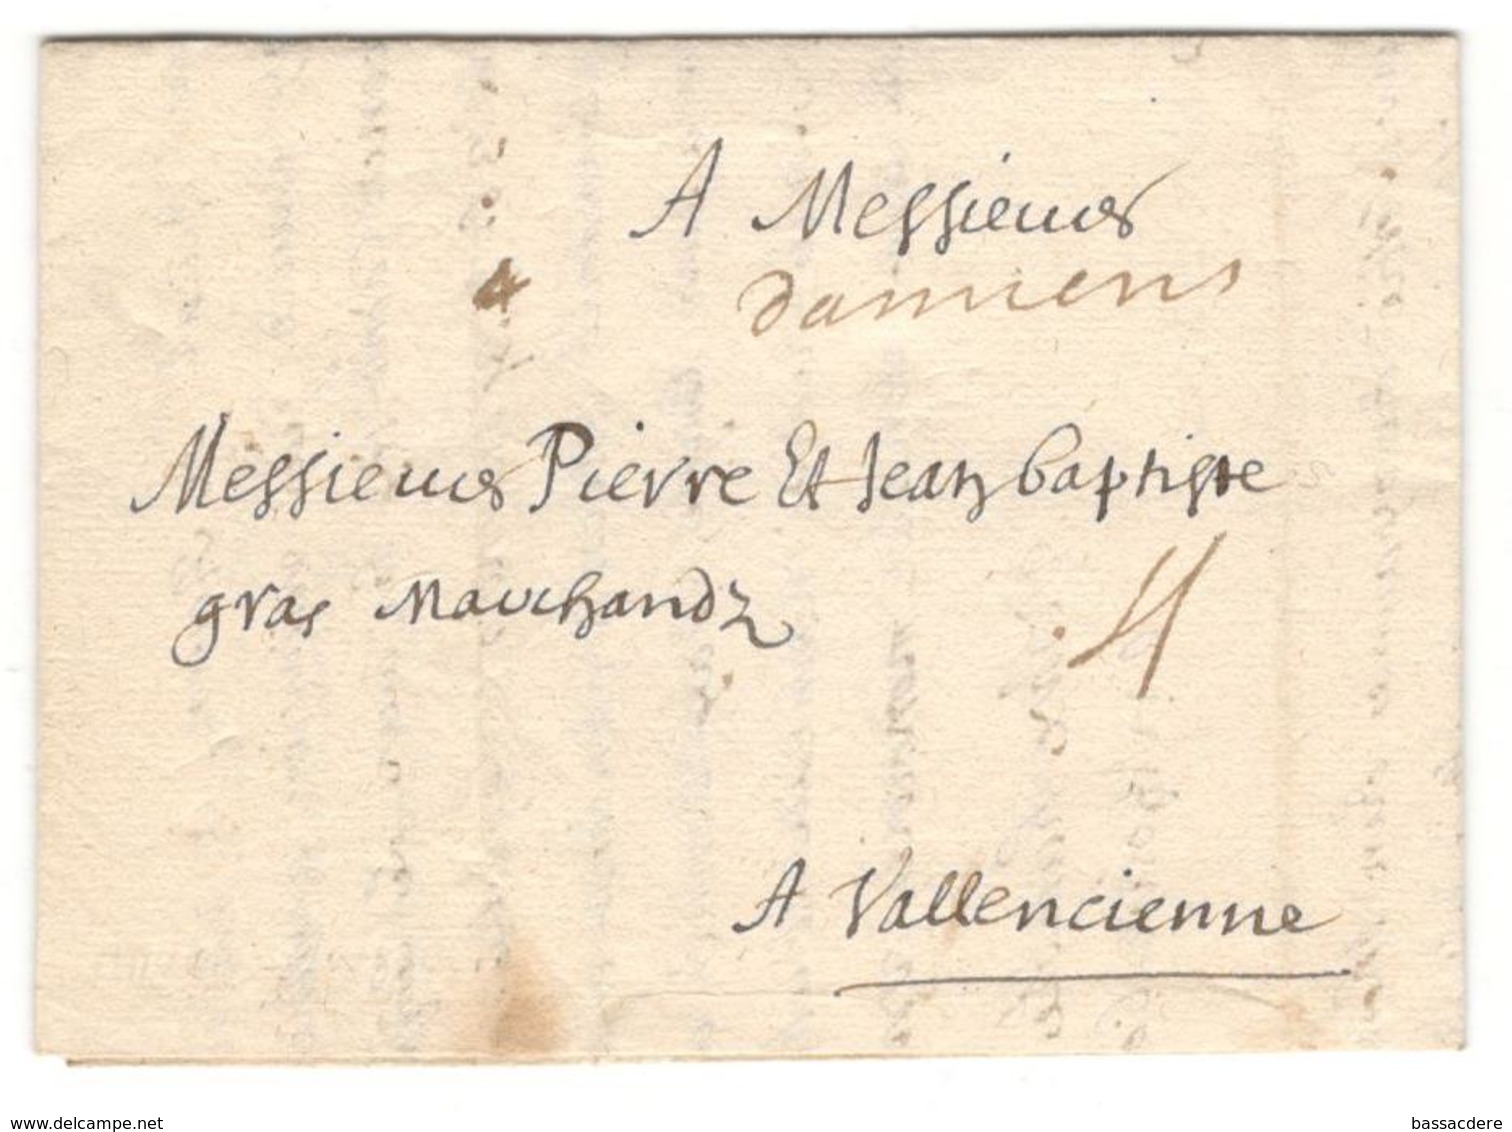 A Messieurs
damiens
4
Messieurs Pierre Et Jean baptiste
gras Marchandz
4
A Vallencienne
www.delcampe.net
bassacdere